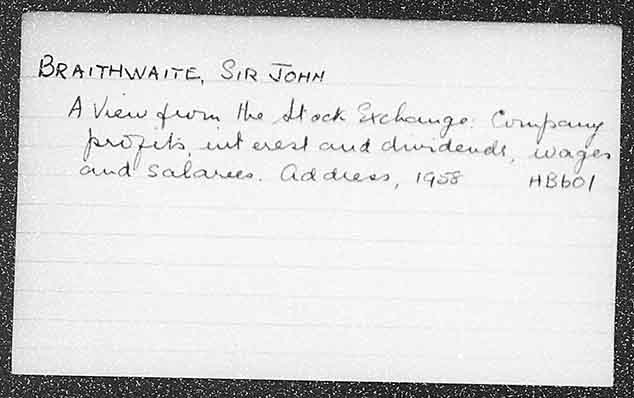 BRAITHWAITE, SIR JOHN
A View from the Stock Exchange: Company
profits, interest and dividends, wages
and salaries. Address, 1958 HB601